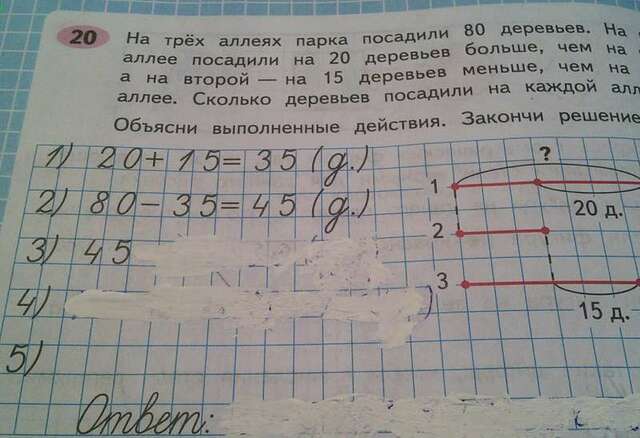 20 На трёх аллеях парка посадили 80 деревьев. На
аллее посадили на 20 деревьев больше, чем на
а на второй — на 15 деревьев меньше, чем на
аллее. Сколько деревьев посадили на каждой
Объясни выполненные действия. Закончи решение
1) 20+15=35 (д.)
2) 80-35=45 (д.)
3) 45
4)
5)
Ответ:
?
1
20 д.
2
3
15 д.